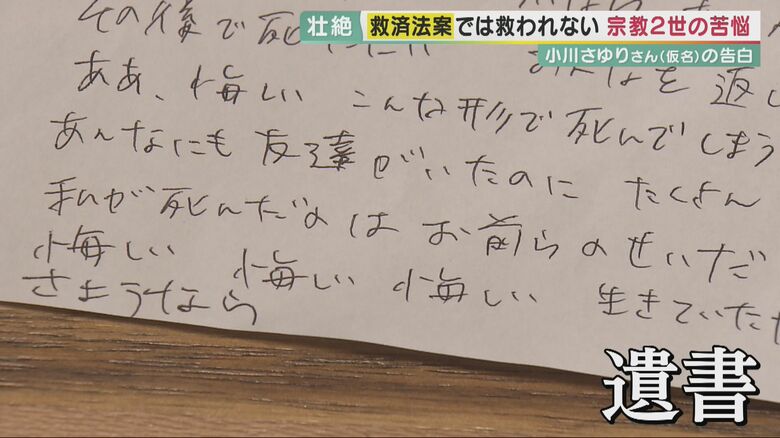 壮絶 救済法案では救われない 宗教2世の苦悩
小川さゆりさん(仮名)の告白
その後で死
ああ、悔しい こんな形で死んでしまう
あんなにも友達がいたのに たくさん
私が死んだのはお前らのせいだ
悔しい 悔しい 悔しい 生きていた
さようなら
遺書